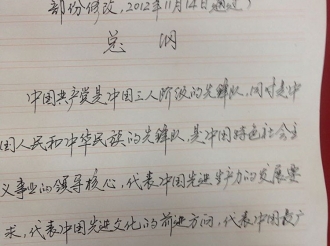 部份修改,2012年11月14日通过)
总 纲
中国共产党是中国工人阶级的先锋队,同时是中
国人民和中华民族的先锋队,是中国特色社会主
义事业的领导核心,代表中国先进生产力的发展要
求,代表中国先进文化的前进方向,代表中国最广